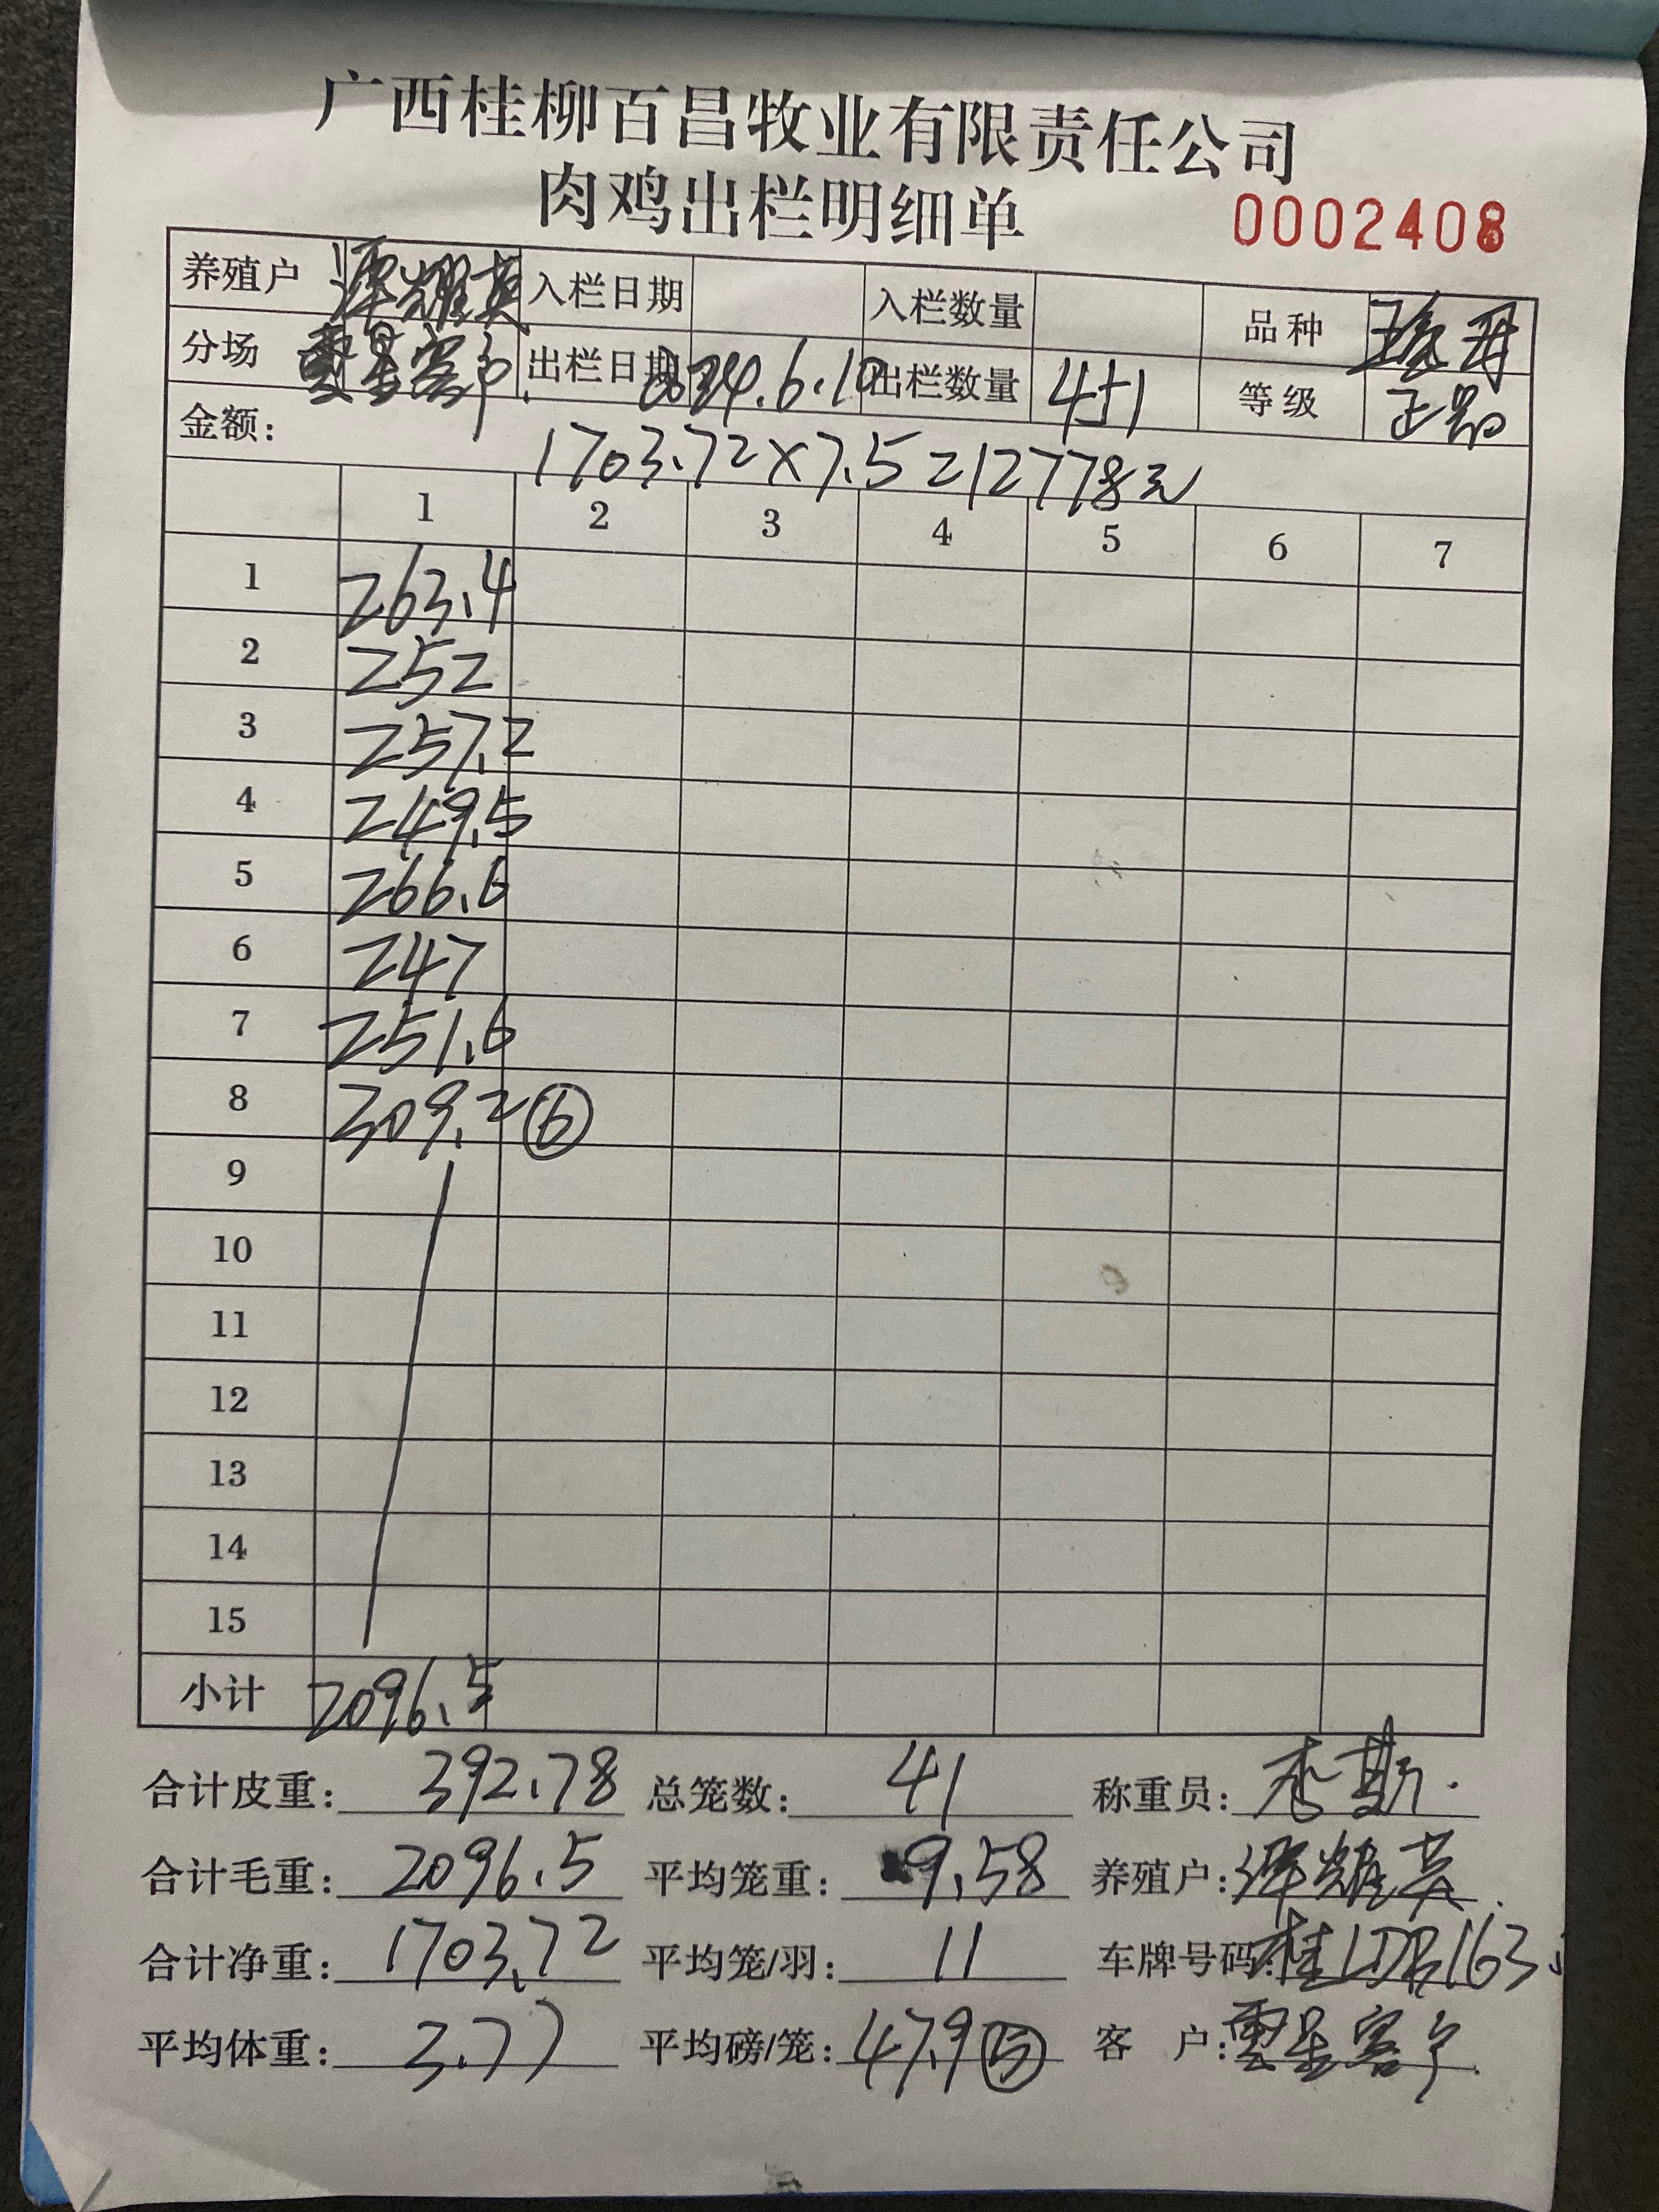 广西桂柳百昌牧业有限责任公司
肉鸡出栏明细单 0002408
养殖户 谭耀英 入栏日期 入栏数量 品种
分场 云星客户 出栏日期 2024.6.10 出栏数量 451 等级 正品
金额: 1703.72×7.5=12778元
1 2 3 4 5 6 7
1 263.4
2 252
3 257.2
4 249.5
5 266.6
6 247
7 251.6
8 309.2 ⑥
9
10
11
12
13
14
15
小计 2096.5
合计皮重: 392.78 总笼数: 41 称重员:
合计毛重: 2096.5 平均笼重: 9.58 养殖户: 谭耀英
合计净重: 1703.72 平均笼/羽: 11 车牌号码:
平均体重: 3.77 平均磅/笼: 47.9 ⑤ 客 户: 云星客户